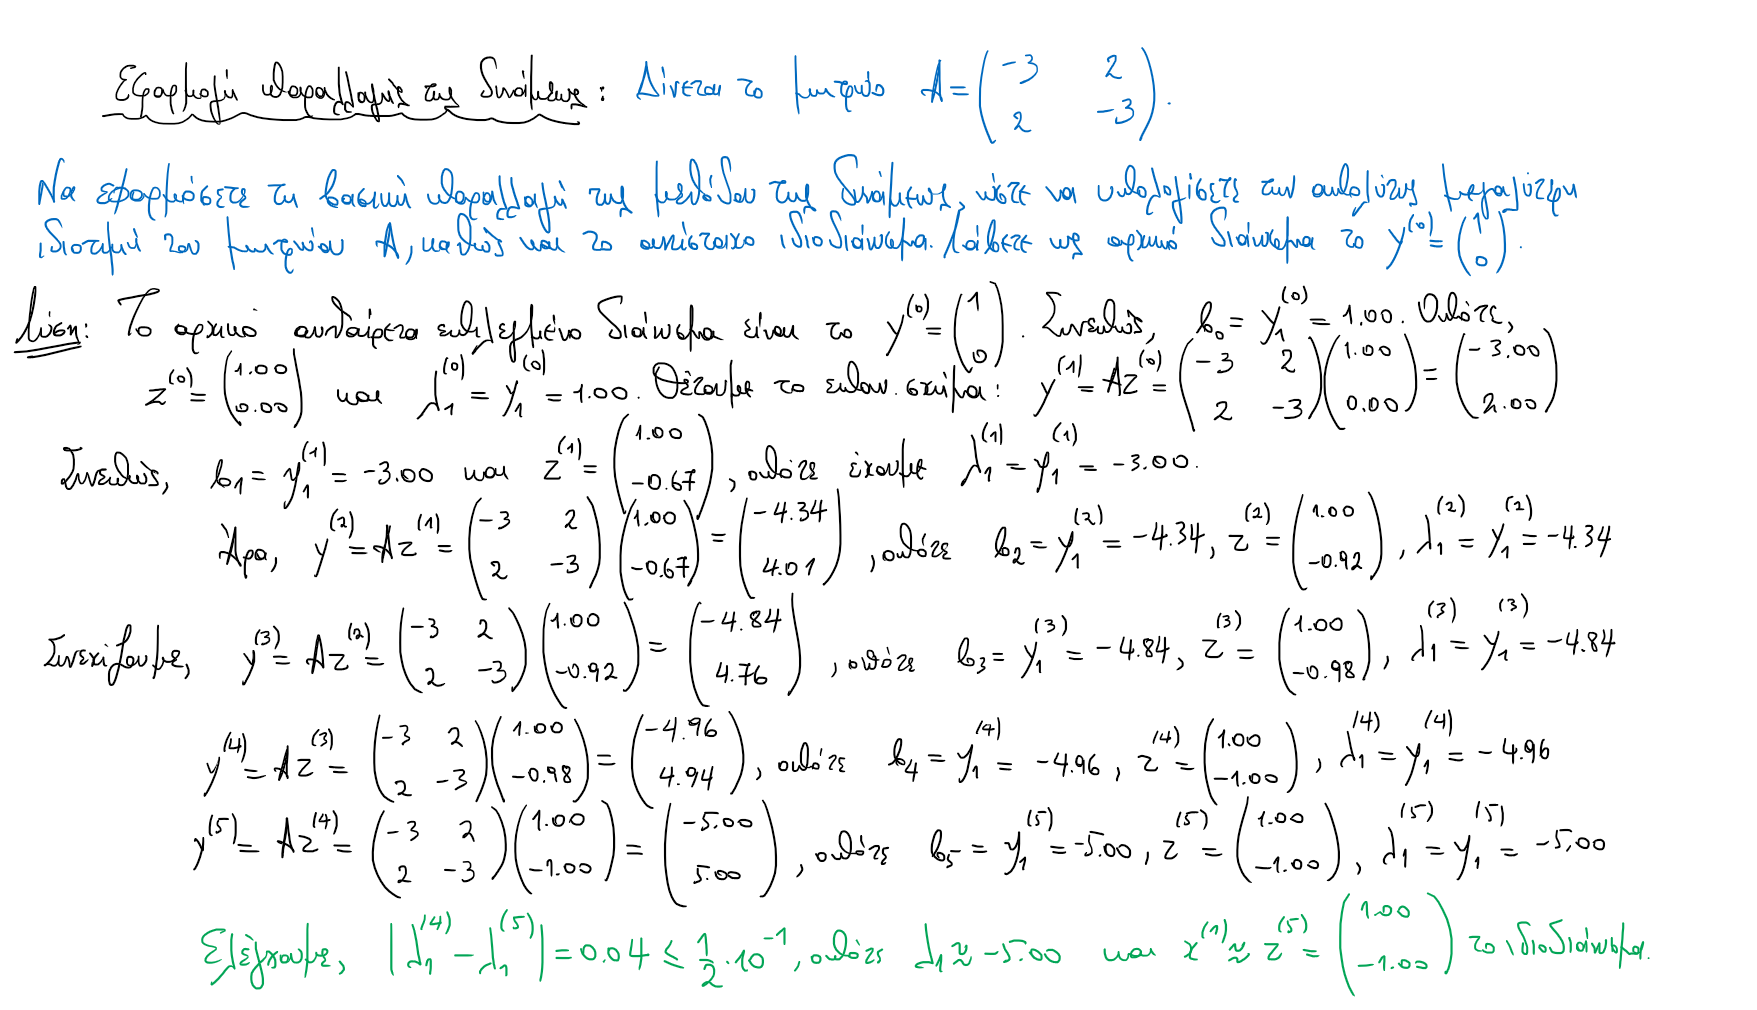 Εφαρμογή παραλλαγής της δυνάμεως: Δίνεται το μητρώο A = (-3 2 / 2 -3).
Να εφαρμόσετε τη βασική παραλλαγή της μεθόδου της δυνάμεως, ώστε να υπολογίσετε την απολύτως μεγαλύτερη
ιδιοτιμή του μητρώου A, καθώς και το αντίστοιχο ιδιοδιάνυσμα. Λάβετε ως αρχικό διάνυσμα το y^(0) = (1 / 0).
Λύση: Το αρχικό αυθαίρετα επιλεγμένο διάνυσμα είναι το y^(0) = (1 / 0). Συνεπώς, b₀ = y₁^(0) = 1.00. Οπότε,
z^(0) = (1.00 / 0.00) και λ₁^(0) = y₁^(0) = 1.00. Θέτουμε το επαν. σχήμα: y^(1) = Az^(0) = (-3 2 / 2 -3)(1.00 / 0.00) = (-3.00 / 2.00)
Συνεπώς, b₁ = y₁^(1) = -3.00 και z^(1) = (1.00 / -0.67), οπότε έχουμε λ₁^(1) = y₁^(1) = -3.00.
Άρα, y^(2) = Az^(1) = (-3 2 / 2 -3)(1.00 / -0.67) = (-4.34 / 4.01), οπότε b₂ = y₁^(2) = -4.34, z^(2) = (1.00 / -0.92), λ₁^(2) = y₁^(2) = -4.34
Συνεχίζουμε, y^(3) = Az^(2) = (-3 2 / 2 -3)(1.00 / -0.92) = (-4.84 / 4.76), οπότε b₃ = y₁^(3) = -4.84, z^(3) = (1.00 / -0.98), λ₁^(3) = y₁^(3) = -4.84
y^(4) = Az^(3) = (-3 2 / 2 -3)(1.00 / -0.98) = (-4.96 / 4.94), οπότε b₄ = y₁^(4) = -4.96, z^(4) = (1.00 / -1.00), λ₁^(4) = y₁^(4) = -4.96
y^(5) = Az^(4) = (-3 2 / 2 -3)(1.00 / -1.00) = (-5.00 / 5.00), οπότε b₅ = y₁^(5) = -5.00, z^(5) = (1.00 / -1.00), λ₁^(5) = y₁^(5) = -5.00
Ελέγχουμε, |λ₁^(4) - λ₁^(5)| = 0.04 ≤ 1/2 · 10^-1, οπότε λ₁ ≈ -5.00 και x^(1) ≈ z^(5) = (1.00 / -1.00) το ιδιοδιάνυσμα.